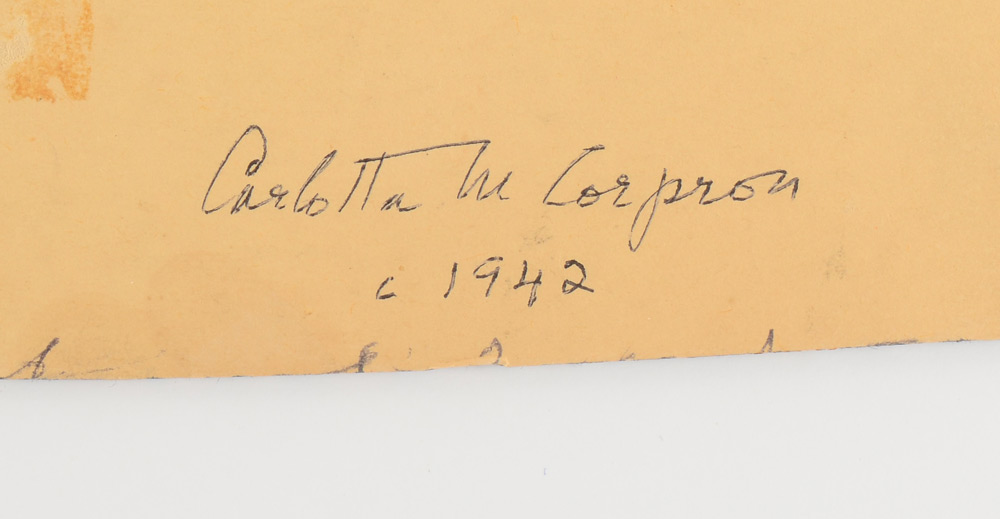 Carlotta M Corpron
c 1942